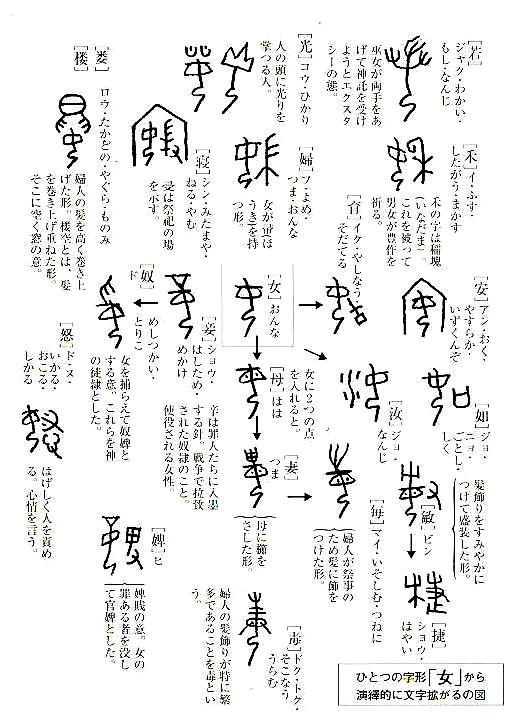 [若]
ジャク・わかい・
もし・なんじ
巫女が両手をあ
げて神託を受け
ようとエクスタ
シーの態。
[光] コウ・ひかり
人の頭に光りを
掌つる人。
[婁]
[楼]
ロウ・たかどの・やぐら・ものみ
婦人の髪を高く巻き上
げた形。楼空とは、髪
を巻き上げ重ねた形。
そこに空く窓の意。
[禾] イ・ふす・
したがう・まかす
禾の字は稲塊
(いなだま)
これを被って
男女が豊作を
祈る。
[育] イク・やしなう・
そだてる
[婦] フ・よめ・
つま・おんな
女が帚(ほ
うき)を持
つ形。
[寝] シン・みたまや・
ねる・やむ
寝は祭祀の場
を示す。
[安] アン・おく・
やすらか・
いずくんぞ
[女] おんな
[妾] ショウ・
はしため・
めかけ
辛は罪人たちに入墨
する針。戦争で拉致
された奴隷のこと。
使役される女性。
[奴]
ド
めしつかい・
とりこ
女を捕らえて奴婢と
する意。これらを神
の徒隷とした。
[怒] ド・ヌ・
いかる・
おこる・
しかる
はげしく人を責め
る。心情を言う。
[如] ジョ・
ニョ・
ごとし・
しく
[汝] ジョ・
なんじ
女に2つの点
を入れると。
[母] はは
[妻]
つま
母に櫛を
さした形。
[敏] ビン
髪飾りをすみやかに
つけて盛装した形。
[毎] マイ・いそしむ・つねに
婦人が祭事の
ため髪に飾を
つけた形。
[捷]
ショウ・
はやい
[婢] ヒ
婢賎の意。女の
罪ある者を没し
て官婢とした。
[毒] ドク・トク・
そこなう
うらむ
婦人の髪飾りが特に繁
多であることを毒とい
う。
ひとつの字形「女」から
演繹的に文字拡がるの図